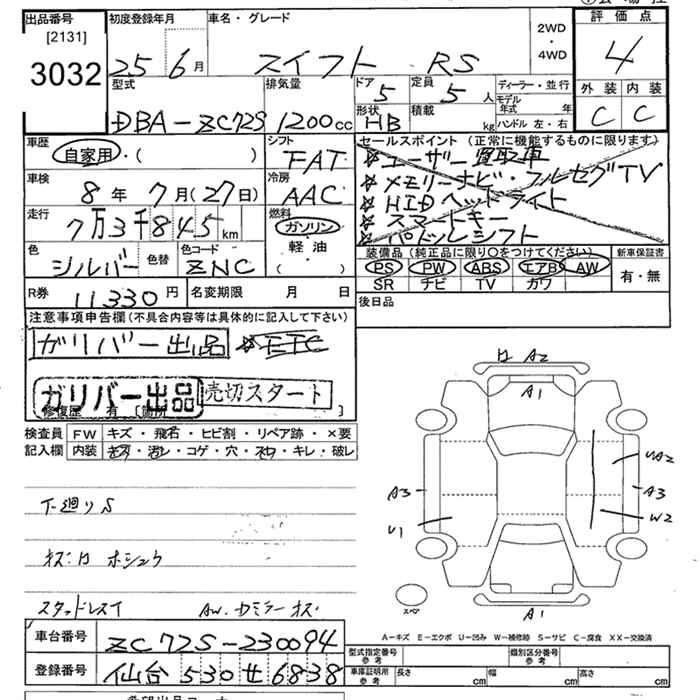 出品番号 初度登録年月 車名・グレード 評価点
[2131]
3032
25 6月 スイフト RS
2WD
・
4WD
4
型式 排気量 ドア 定員 ディーラー・並行 外装 内装
5 5人 モデル年式 年
DBA-ZC72S 1200cc 形状 HB 積載 kg ハンドル 左・右 C C
車歴 シフト セールスポイント(正常に機能するものに限ります)
自家用・( ) FAT ☆ユーザー買取車
車検 冷房 ☆メモリーナビ・フルセグTV
8年7月(27日) AAC ☆HIDヘッドライト
走行 燃料 ☆スマートキー
7万3千845km ガソリン ☆パドルシフト
色 色替 色コード 軽油 装備品(純正品に限り○をつけてください) 新車保証書
シルバー ZNC ( ) PS PW ABS エアB AW 有・無
SR チビ TV カワ
R券 11330円 名変期限 月 日 後日品
注意事項申告欄(不具合内容等は具体的に記入して下さい)
ガリバー出品 ☆ETC
ガリバー出品 売切スタート
修復歴 有 [箇所 ]
検査員 FW キズ・飛石・ヒビ割・リペア跡・×要
記入欄 内装 キズ・汚レ・コゲ・穴・スレ・キレ・破レ
A2
A1
UA2
A3 A3
U1 W2
下廻りS
キズ:ロ ホシュウ
スタッドレスT AW.Dミラーキズ
スペア A1
A-キズ E-エクボ U-凹み W-補修跡 S-サビ C-腐食 XX-交換済
車台番号 ZC72S-230094
型式指定番号 参考 類別区分番号 参考
登録番号 仙台 530 せ 6838
車庫証明用 参考 長さ cm 幅 cm 高さ cm